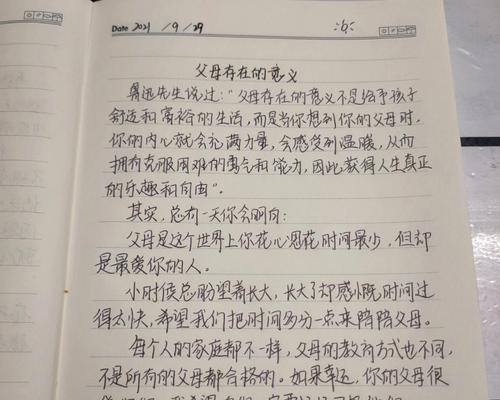 Date 2021 / 9 / 29
父母存在的意义
鲁迅先生说过："父母存在的意义不是给予孩子
舒适和富裕的生活，而是当你想到你的父母时，
你的内心就会充满力量，会感受到温暖，从而
拥有克服困难的勇气和能力，因此获得人生真正
的乐趣和自由"。
其实，总有一天你会明白：
父母是这个世界上你花心思花时间最少，但却
是最爱你的人。
小时候总盼望着长大，长大了却感慨时间过
得太快，希望我们把时间多分一点来陪陪父母。
每个人的家庭都不一样，父母的教育方式也不同，
不是所有的父母都合格的。如果幸运，你的父母很